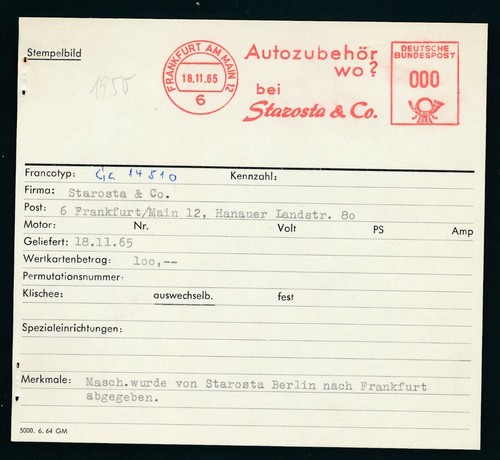 Stempelbild
1950
FRANKFURT AM MAIN 12
18.11.65
6
Autozubehör
wo?
bei
Starosta & Co.
DEUTSCHE
BUNDESPOST
000
Francotyp: Cc 14510 Kennzahl:
Firma: Starosta & Co.
Post: 6 Frankfurt/Main 12, Hanauer Landstr. 80
Motor: Nr. Volt PS Amp
Geliefert: 18.11.65
Wertkartenbetrag: 100,--
Permutationsnummer:
Klischee: auswechselb. fest
Spezialeinrichtungen:
Merkmale: Masch.wurde von Starosta Berlin nach Frankfurt
abgegeben.
5000. 6. 64 GM